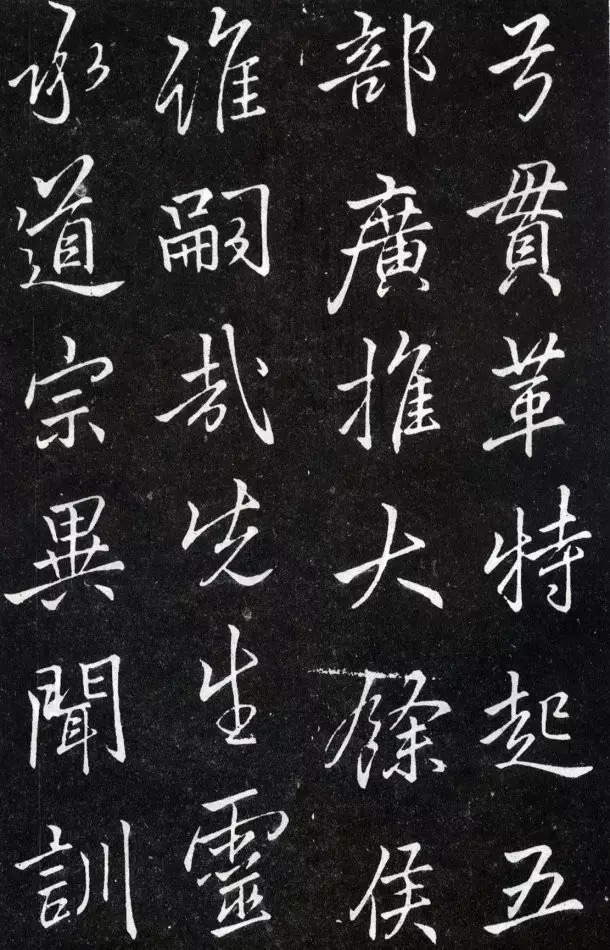 弓貫革特起五
部廣推大餘侯
誰嗣哉先生靈
承道宗異聞訓